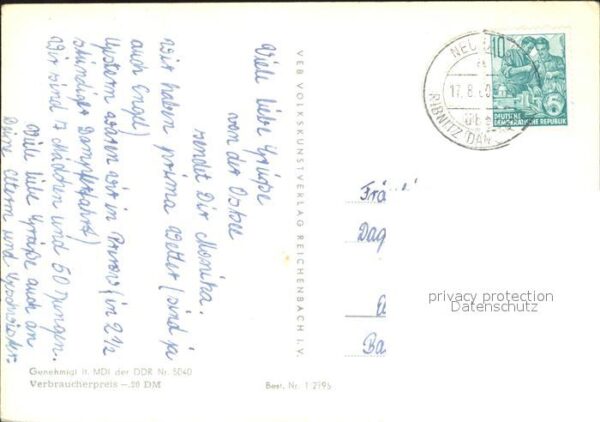 Viele liebe Grüße
von der Ostsee
sendet Dir Monika.
Wir haben prima Wetter (sind ja
auch Engel)
Gestern waren wir in Prerow (in 2 1/2
stündiger Dampferfahrt)
Wir sind 17 Mädchen und 50 Jungen.
Viele liebe Grüße auch an
Deine Eltern und Geschwister.
Genehmigt lt. MDI der DDR Nr. 5040
Verbraucherpreis –.20 DM
Best. Nr. I 2195
VEB VOLKSKUNSTVERLAG REICHENBACH I. V.
10
DEUTSCHE
DEMOKRATISCHE REPUBLIK
17. 8. 60
RIBNITZ-DAM
Frä
Dag
Ba
privacy protection
Datenschutz